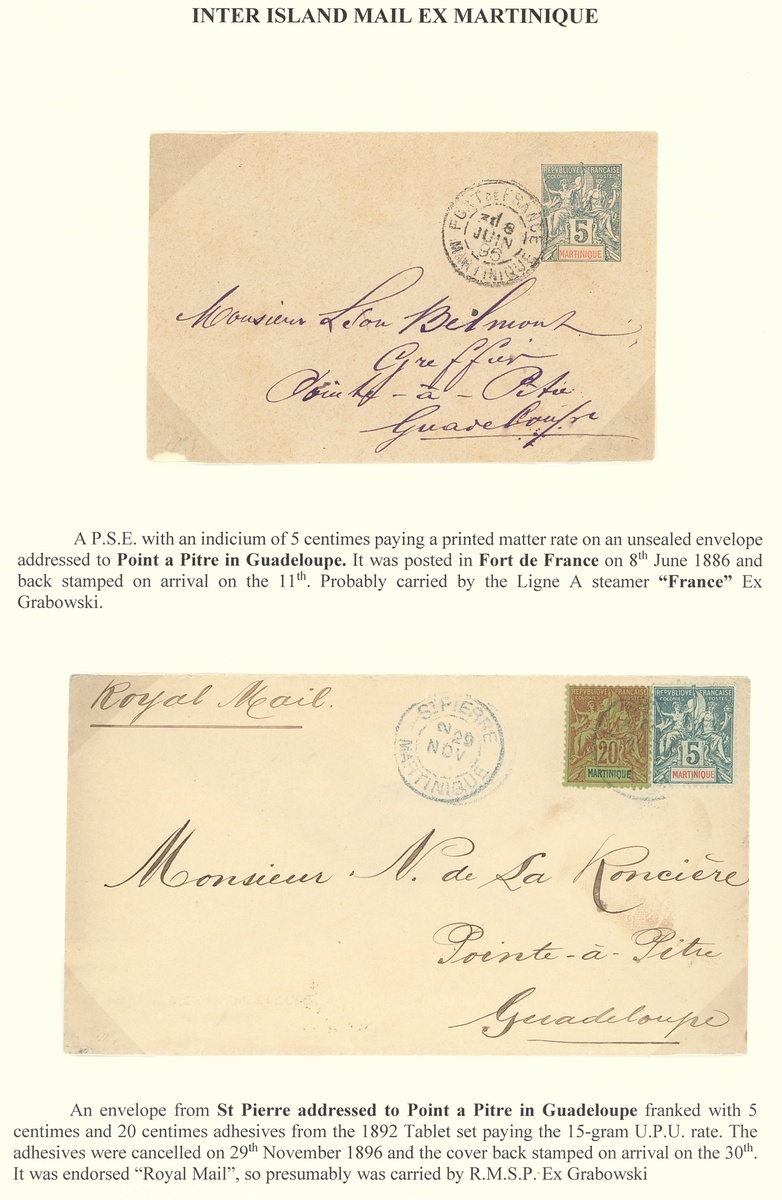 INTER ISLAND MAIL EX MARTINIQUE
REPUBLIQUE FRANÇAISE
COLONIES POSTES
5
MARTINIQUE
FORT DE FRANCE
8
JUIN
MARTINIQUE
Monsieur Léon Belmont
Greffier
Pointe-à-Pitre
Guadeloupe
A P.S.E. with an indicium of 5 centimes paying a printed matter rate on an unsealed envelope
addressed to Point a Pitre in Guadeloupe. It was posted in Fort de France on 8th June 1886 and
back stamped on arrival on the 11th. Probably carried by the Ligne A steamer “France” Ex
Grabowski.
Royal Mail.
ST PIERRE
2
29
NOV
MARTINIQUE
REPUBLIQUE FRANÇAISE
COLONIES POSTES
20
MARTINIQUE
REPUBLIQUE FRANÇAISE
COLONIES POSTES
5
MARTINIQUE
Monsieur N. de La Roncière
Pointe-à-Pitre
Guadeloupe
An envelope from St Pierre addressed to Point a Pitre in Guadeloupe franked with 5
centimes and 20 centimes adhesives from the 1892 Tablet set paying the 15-gram U.P.U. rate. The
adhesives were cancelled on 29th November 1896 and the cover back stamped on arrival on the 30th.
It was endorsed “Royal Mail”, so presumably was carried by R.M.S.P. Ex Grabowski